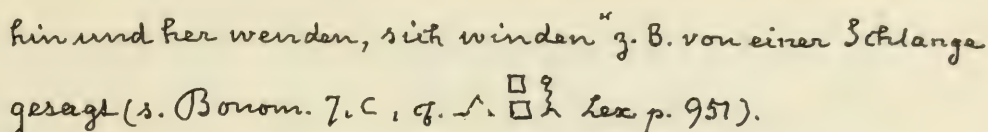 hin und her wenden, sich winden" z. B. von einer Schlange
gesagt (s. Bonom. 7. C, 9. Lex p. 951).